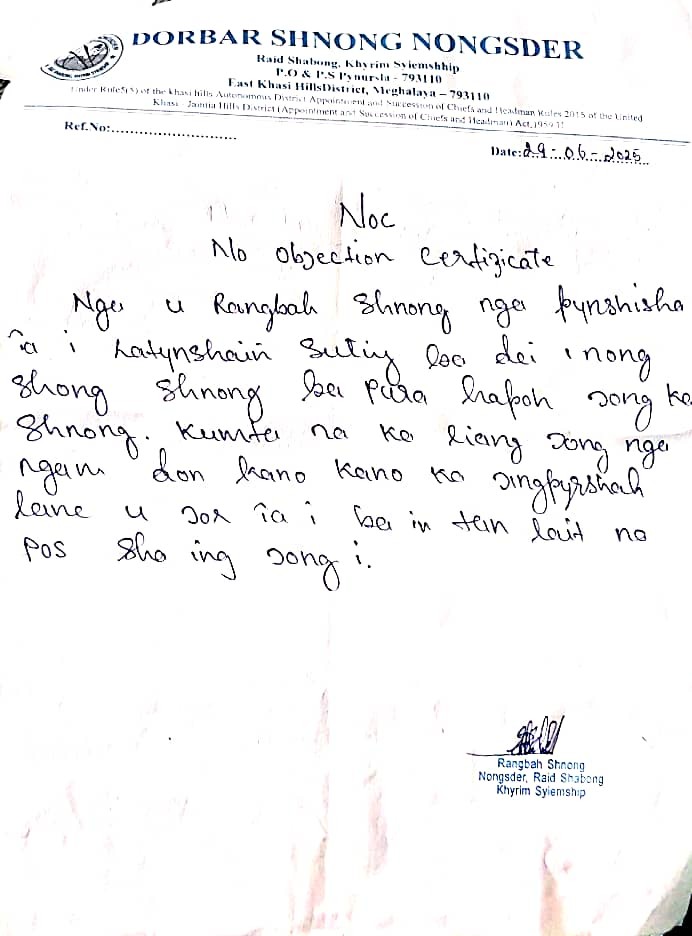 DORBAR SHNONG NONGSDER
Raid Shabong, Khyrim Syiemshhip
P.O & P.S Pynursla - 793110
East Khasi HillsDistrict, Meghalaya – 793110
Under Rule5(5) of the khasi hills Autonomous District Appointment and Succession of Chiefs and Headman Rules 2015 of the United
Khasi - Jaintia Hills District (Appointment and Succession of Chiefs and Headman) Act,1959 11
Ref.No:............................
Date:29-06-2025
Noc
No Objection Certificate
Nga u Rangbah Shnong nga pynshisha
ïa i Latynshain Sutiy ba dei i nong
Shong Shnong ba pura hapoh jong ka
Shnong. Kumta na ka liang jong nga
ngam don kano kano ka jingpyrshah
lane u jor ïa i ba in tan lait no
Pos sha ing jong i.
Rangbah Shnong
Nongsder, Raid Shabong
Khyrim Syiemship